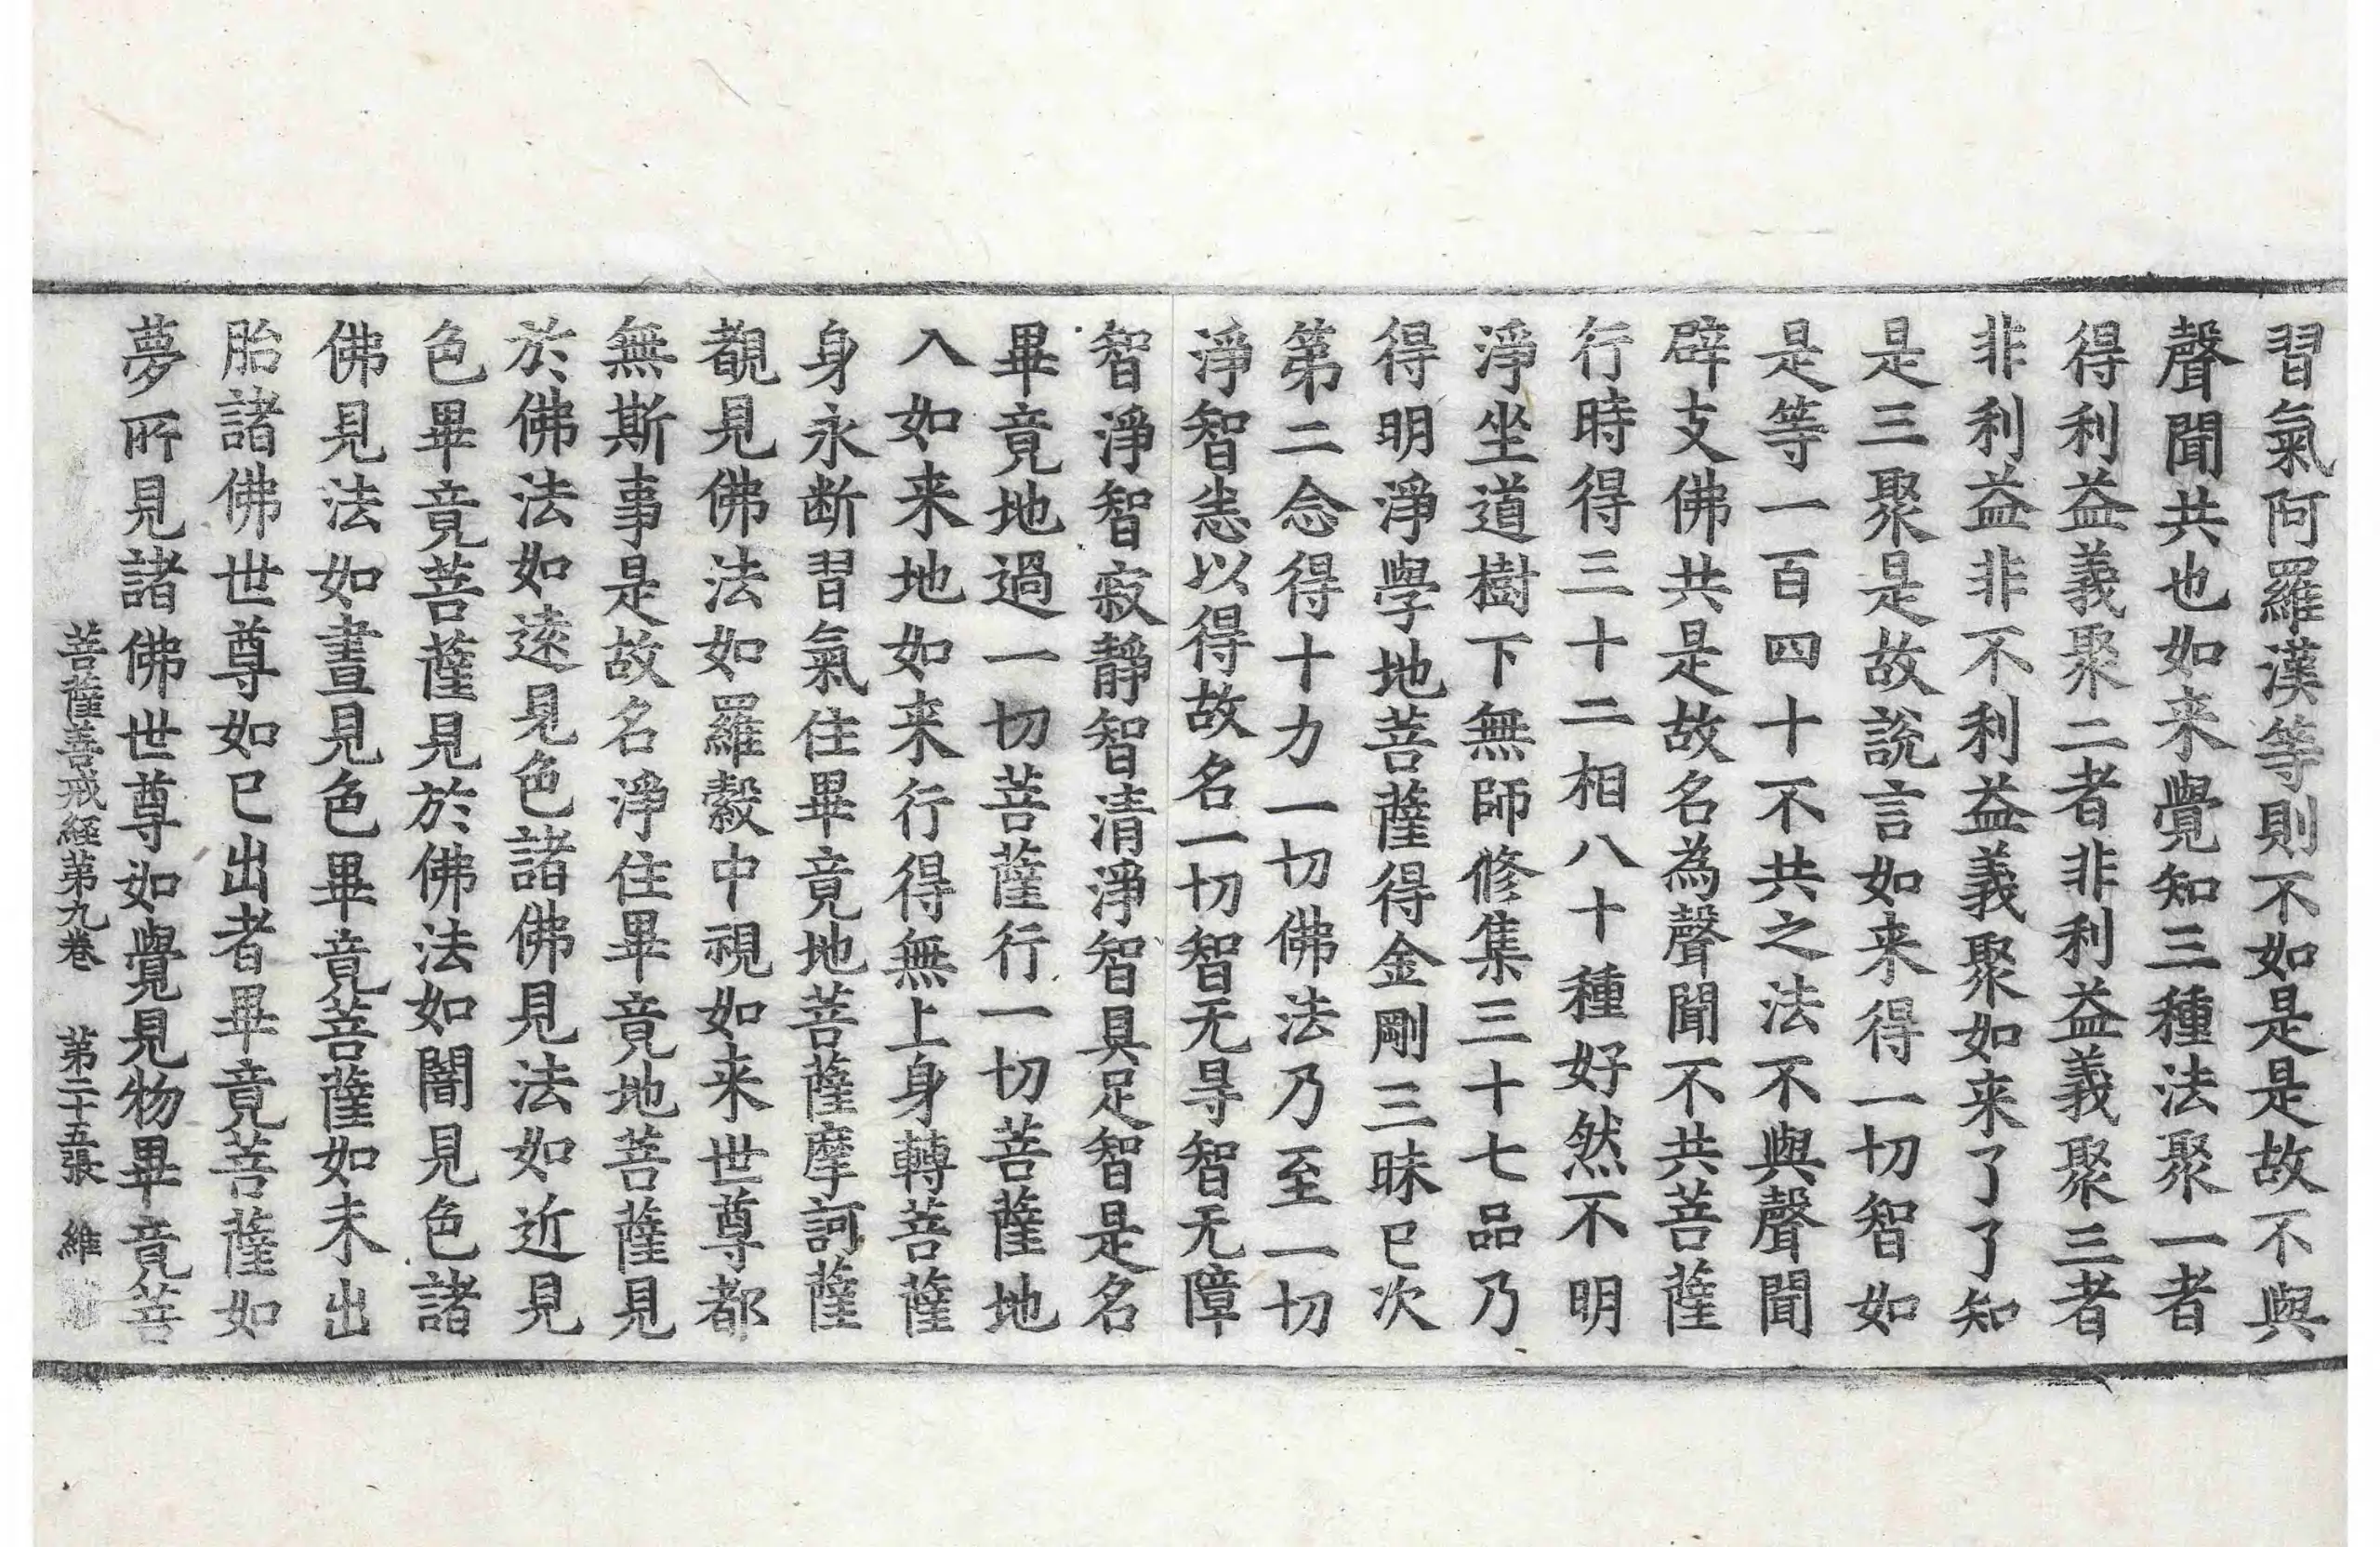 習氣阿羅漢等則不如是是故不與
聲聞共也如来覺知三種法聚一者
得利益義聚二者非利益義聚三者
非利益非不利益義聚如来了了知
是三聚是故說言如来得一切智如
是等一百四十不共之法不與聲聞
辟支佛共是故名為聲聞不共菩薩
行時得三十二相八十種好然不明
淨坐道樹下無師修集三十七品乃
得明淨學地菩薩得金剛三昧已次
第二念得十力一切佛法乃至一切
淨智恙以得故名一切智无㝵智无障
智淨智寂靜智清淨智具足智是名
畢竟地過一切菩薩行一切菩薩地
入如来地如来行得無上身轉菩薩
身永断習氣住畢竟地菩薩摩訶薩
覩見佛法如羅縠中視如来世尊都
無斯事是故名淨住畢竟地菩薩見
於佛法如逺見色諸佛見法如近見
色畢竟菩薩見於佛法如闇見色諸
佛見法如晝見色畢竟菩薩如未出
胎諸佛世尊如已出者畢竟菩薩如
夢所見諸佛世尊如覺見物畢竟菩
菩薩善戒経第九巻　第二十五張　維